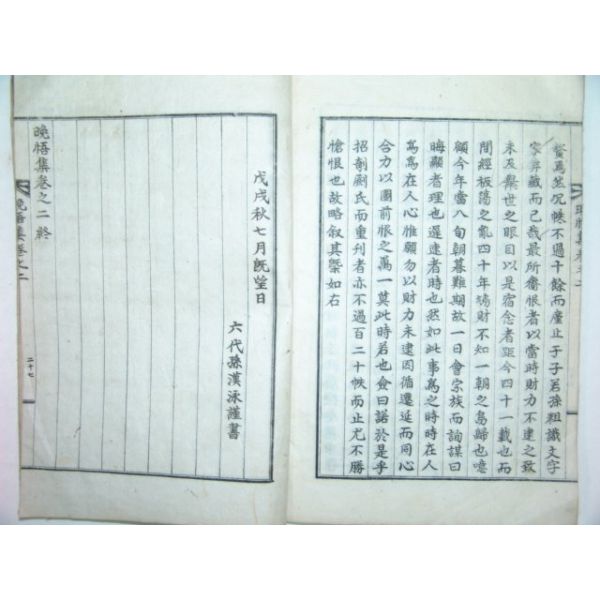 蟄爲并沉帙不過十餘而廑止于子若孫粗識文字
家弆藏而已哉最所嗇恨者以當時財力不逮之致
未及奬世之眼目以是宿念者距今四十一載也而
間經板蕩之亂四十年殖財不知一朝之烏歸也噫
顧今年當八旬朝暮難期故一日會宗族而詢謀曰
晦顯者理也遲速者時也然如此事爲之時時在人
爲爲在人心惟願勿以財力未逮因循遷延而同心
合力以圖前恨之萬一莫此時若也僉曰諾於是乎
招剞劂氏而重刊者亦不過百二十帙而止尤不勝
愴恨也故略叙其槩如右
戊戌秋七月旣望日
六代孫漢泳謹書
晩悟集卷之二終
晩悟集卷之二
二十七